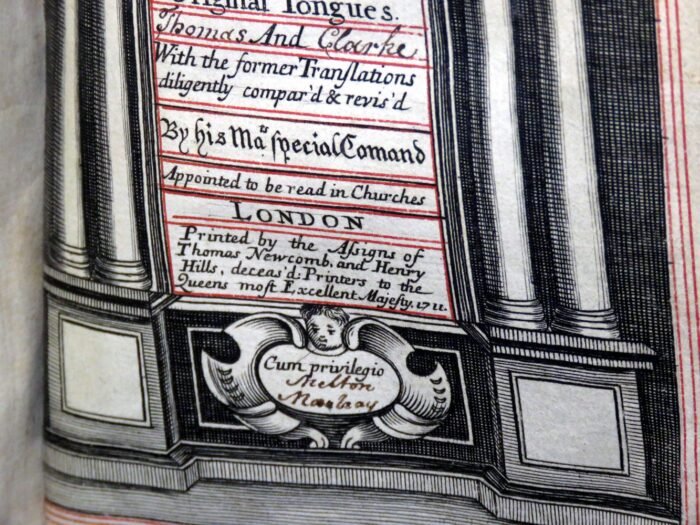 Original Tongues.
Thomas And Clarke
With the former Translations
diligently compar'd & revis'd
By his Ma.ts special Comand
Appointed to be read in Churches
LONDON
Printed by the Assigns of
Thomas Newcomb, and Henry
Hills, deceas'd. Printers to the
Queens most Excellent Majesty. 1711.
Cum privilegio
Melton
Mowbray